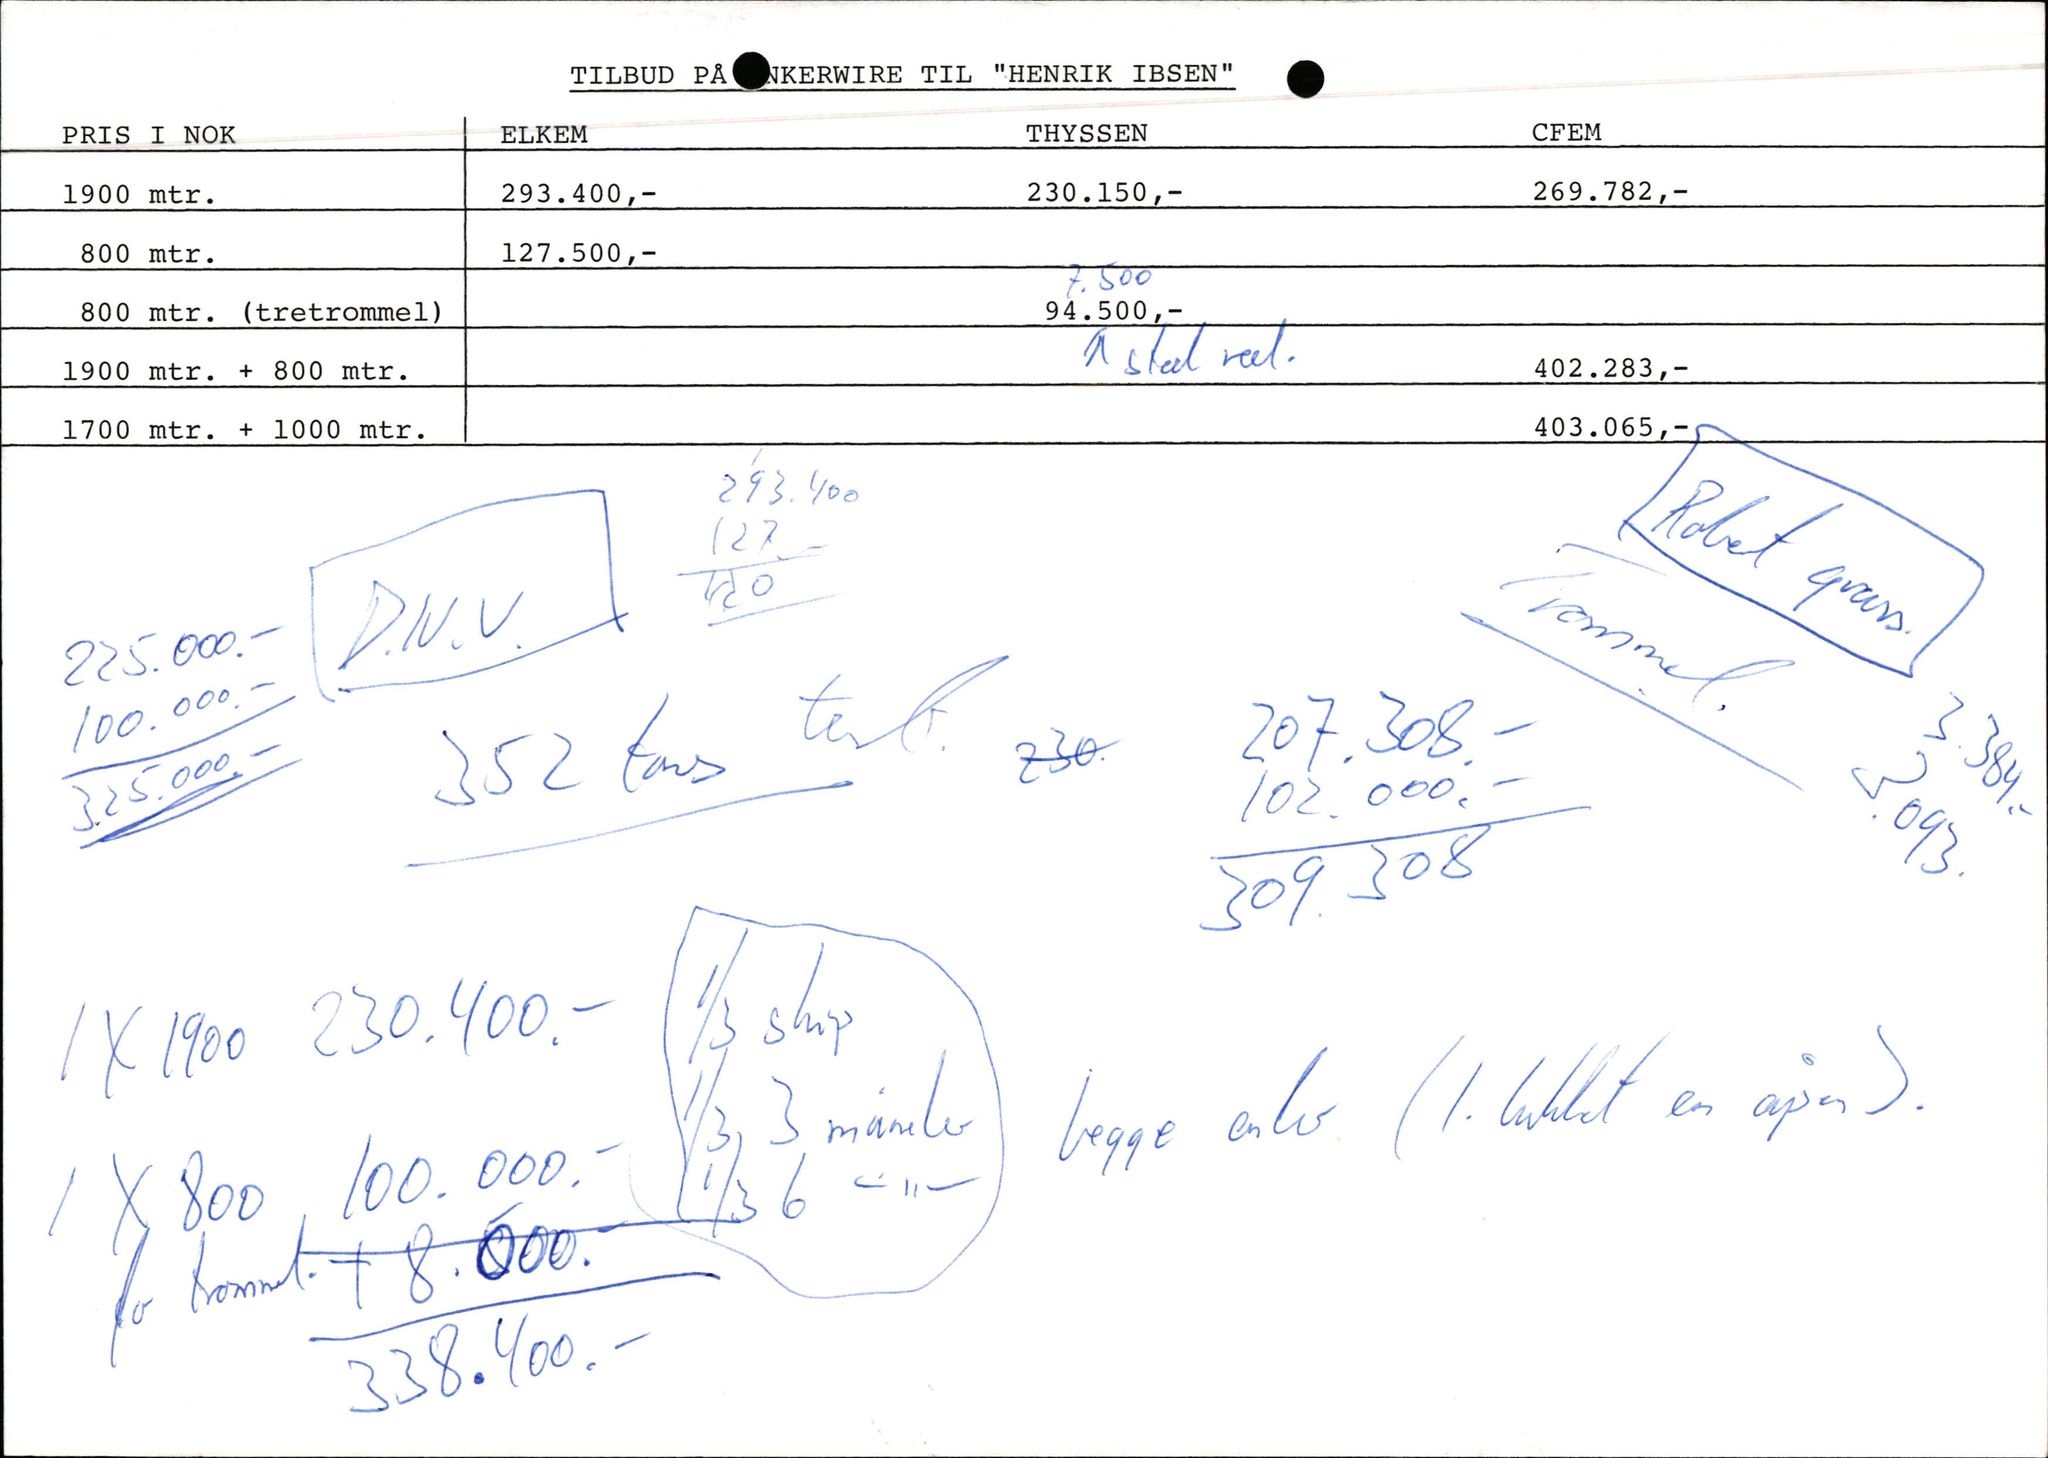 TILBUD PÅ NKERWIRE TIL "HENRIK IBSEN"
PRIS I NOK ELKEM THYSSEN CFEM
1900 mtr. 293.400,- 230.150,- 269.782,-
800 mtr. 127.500,-
7.500
800 mtr. (tretrommel) 94.500,-
steel reel.
1900 mtr. + 800 mtr. 402.283,-
1700 mtr. + 1000 mtr. 403.065,-
293.400
127.-
420
D.N.V.
Trommel.
225.000.-
100.000.-
325.000.-
352 tons test.
230.
207.308.-
102.000.-
309.308
3.384.-
.093.
1 X 1900 230.400.-
1/3 ship
1/3, 3 måneder
1/3 6 -"-
begge ender (1. lukket en åpen).
1 X 800 100.000.-
for trommel. + 8.000.-
338.400.-